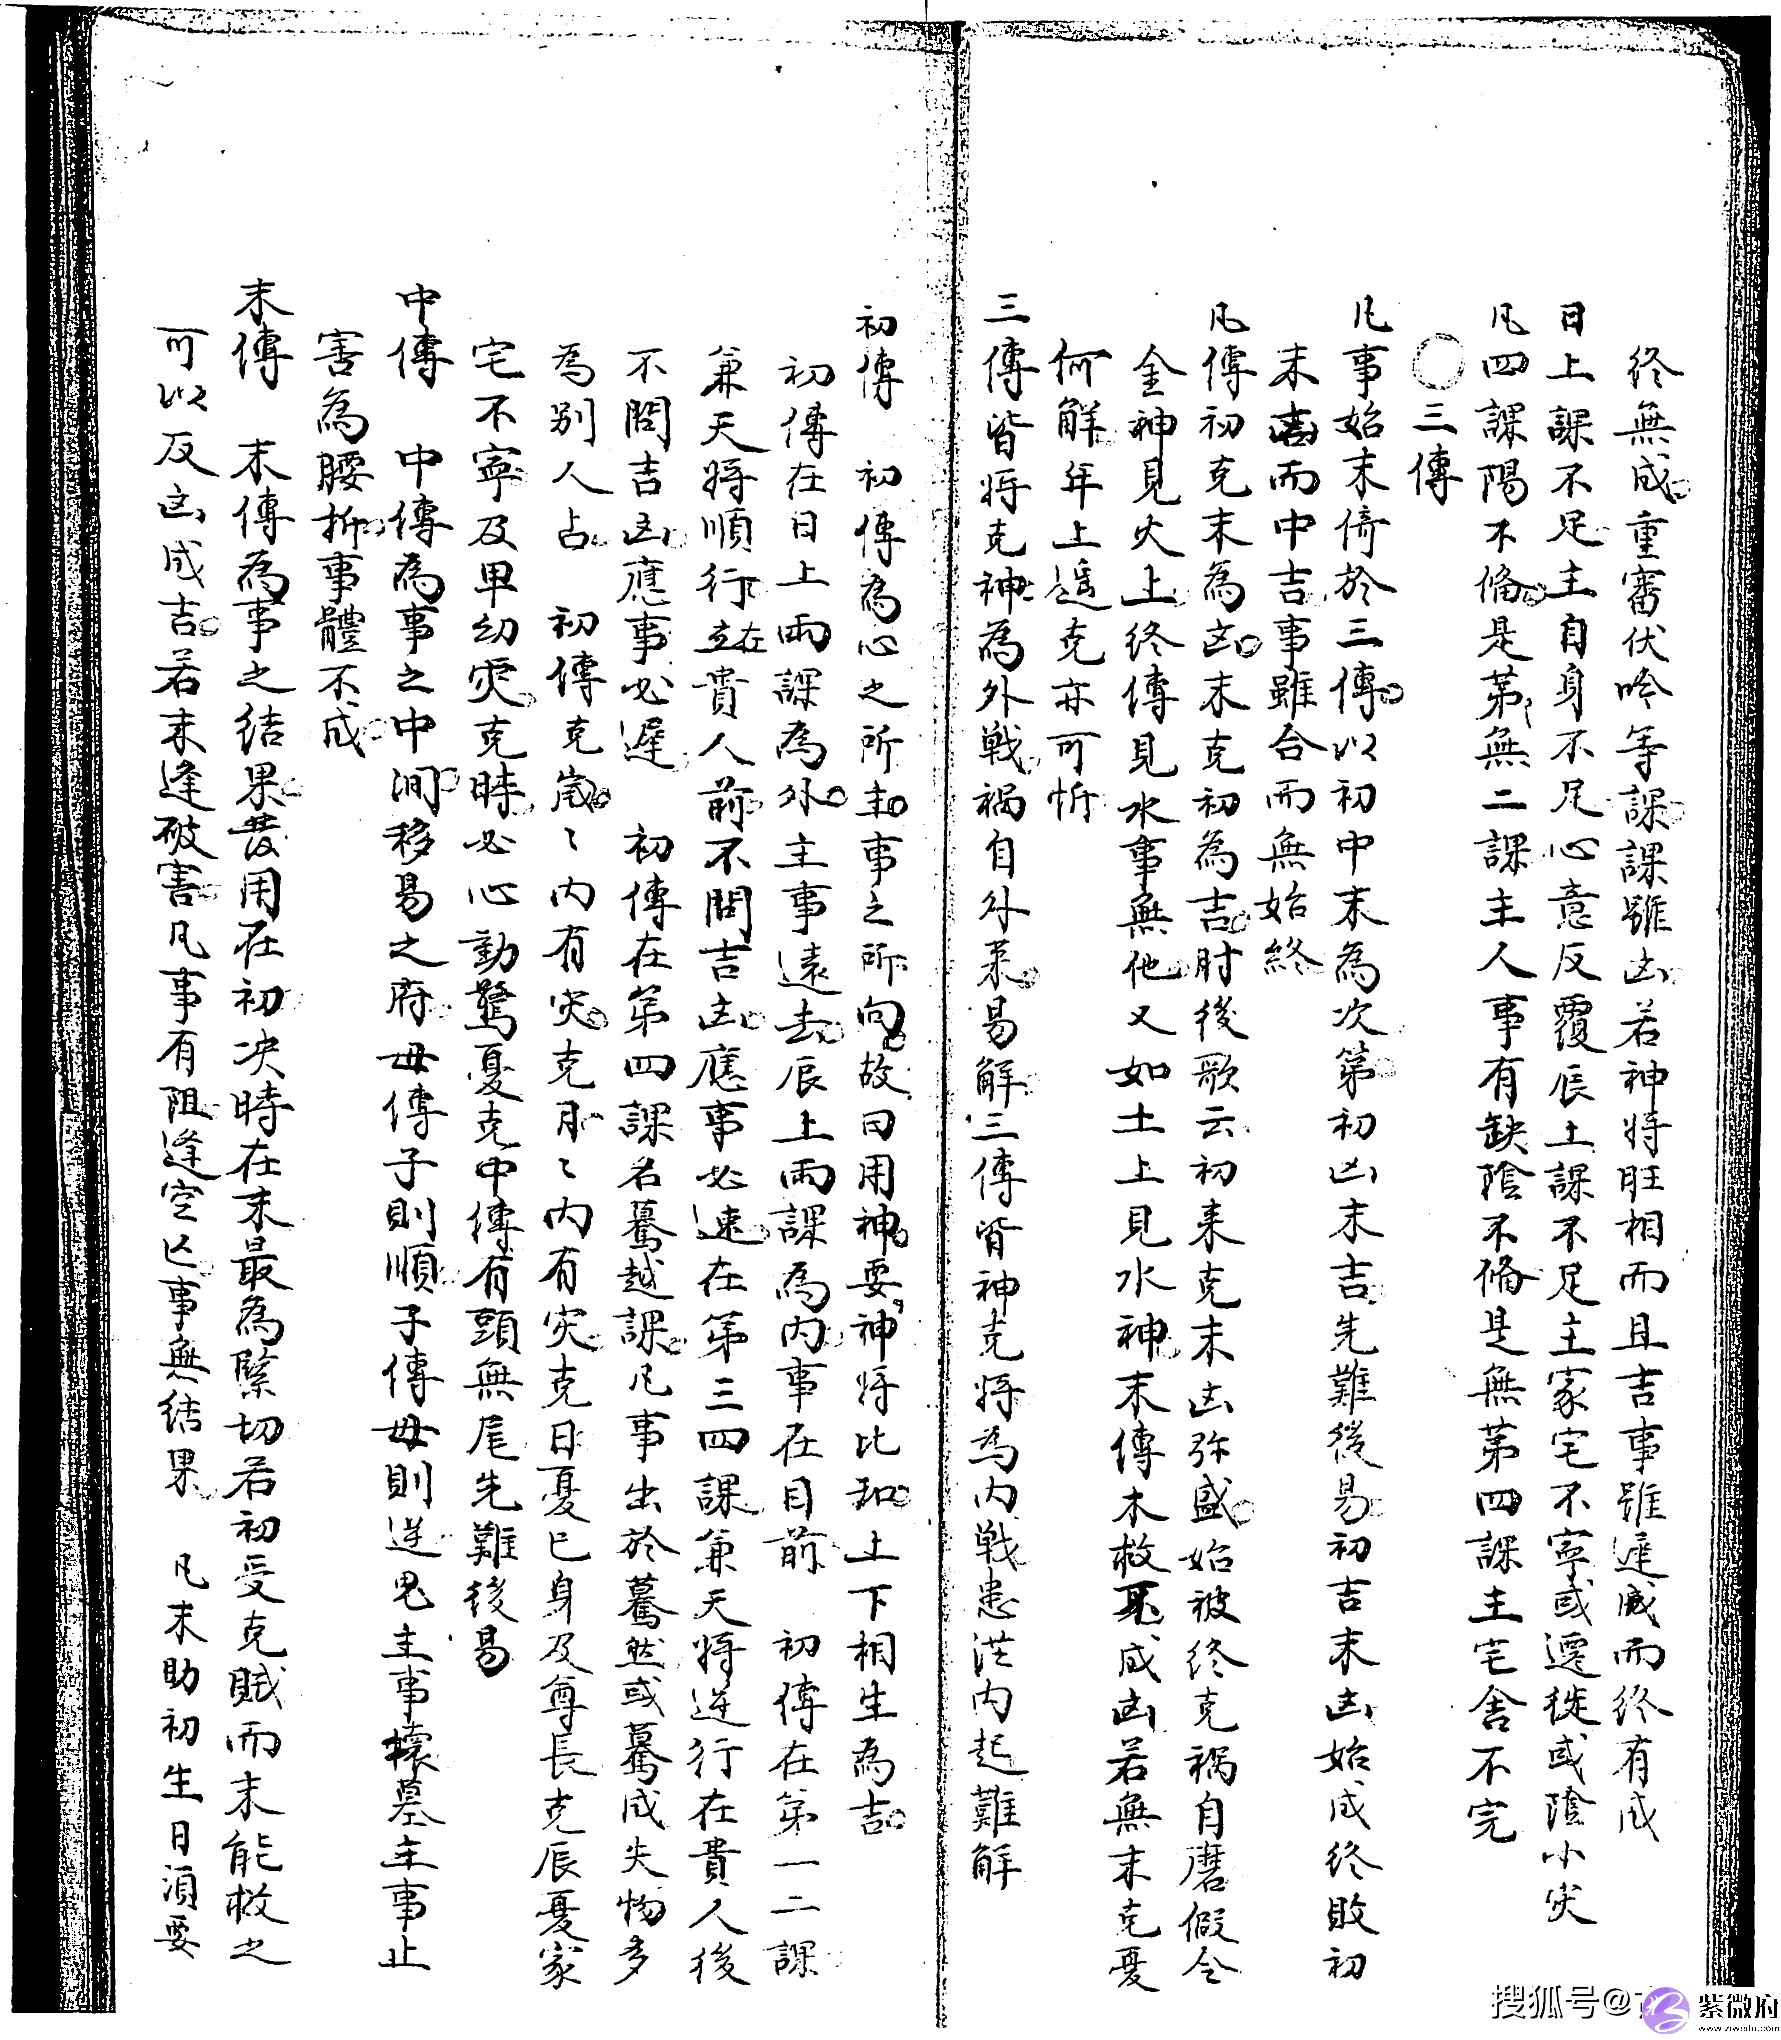 終無成重審伏吟等課課雖凶若神将旺相而且吉事雖遲成而終有成
日上課不足主自身不足心意反覆辰上課不足主家宅不寧或遷徙或陰小灾
凡四課陽不俻是第無二課主人事有缺陰不俻是無第四課主宅舍不完
三傳
凡事始末倚於三傳以初中末為次第初凶末吉先難後易初吉末凶始成終敗初
末吉而中吉事雖合而無始終
凡傳初克末為凶末克初為吉肘後歌云初来克末凶弥盛始被終克禍自磨假令
金神見火上終傳見水事無他又如土上見水神末傳木救成凶若無末克憂
何解年上遥克亦可忻
三傳皆将克神為外戦禍自外来易解三傳皆神克将為内戦患從内起難解
初傳 初傳為心之所主事之所向故曰用神要神将比和上下相生為吉
初傳在日上兩課為外主事遠去辰上兩課為内事在目前 初傳在第一二課
兼天将順行立在貴人前不問吉凶應事必速在第三四課兼天将逆行在貴人後
不問吉凶應事必遲 初傳在第四課名驀越課凡事出於驀然或驀成失物多
為别人占 初傳克歳〻内有灾克月〻内有灾克日憂已身及尊長克辰憂家
宅不寧及卑幼灾克時必心動驚憂克中傳有頭無尾先難後易
中傳 中傳為事之中間移易之府母傳子則順子傳母則逆鬼主事壊墓主事止
害為腰折事體不成
末傳 末傳為事之結果發用在初决時在末最為緊切若初受克賊而末能救之
可以反凶成吉若末逢破害凡事有阻逢空亡事無結果 凡末助初生日須要
搜狐号@
紫微府
www.ziweifu.com